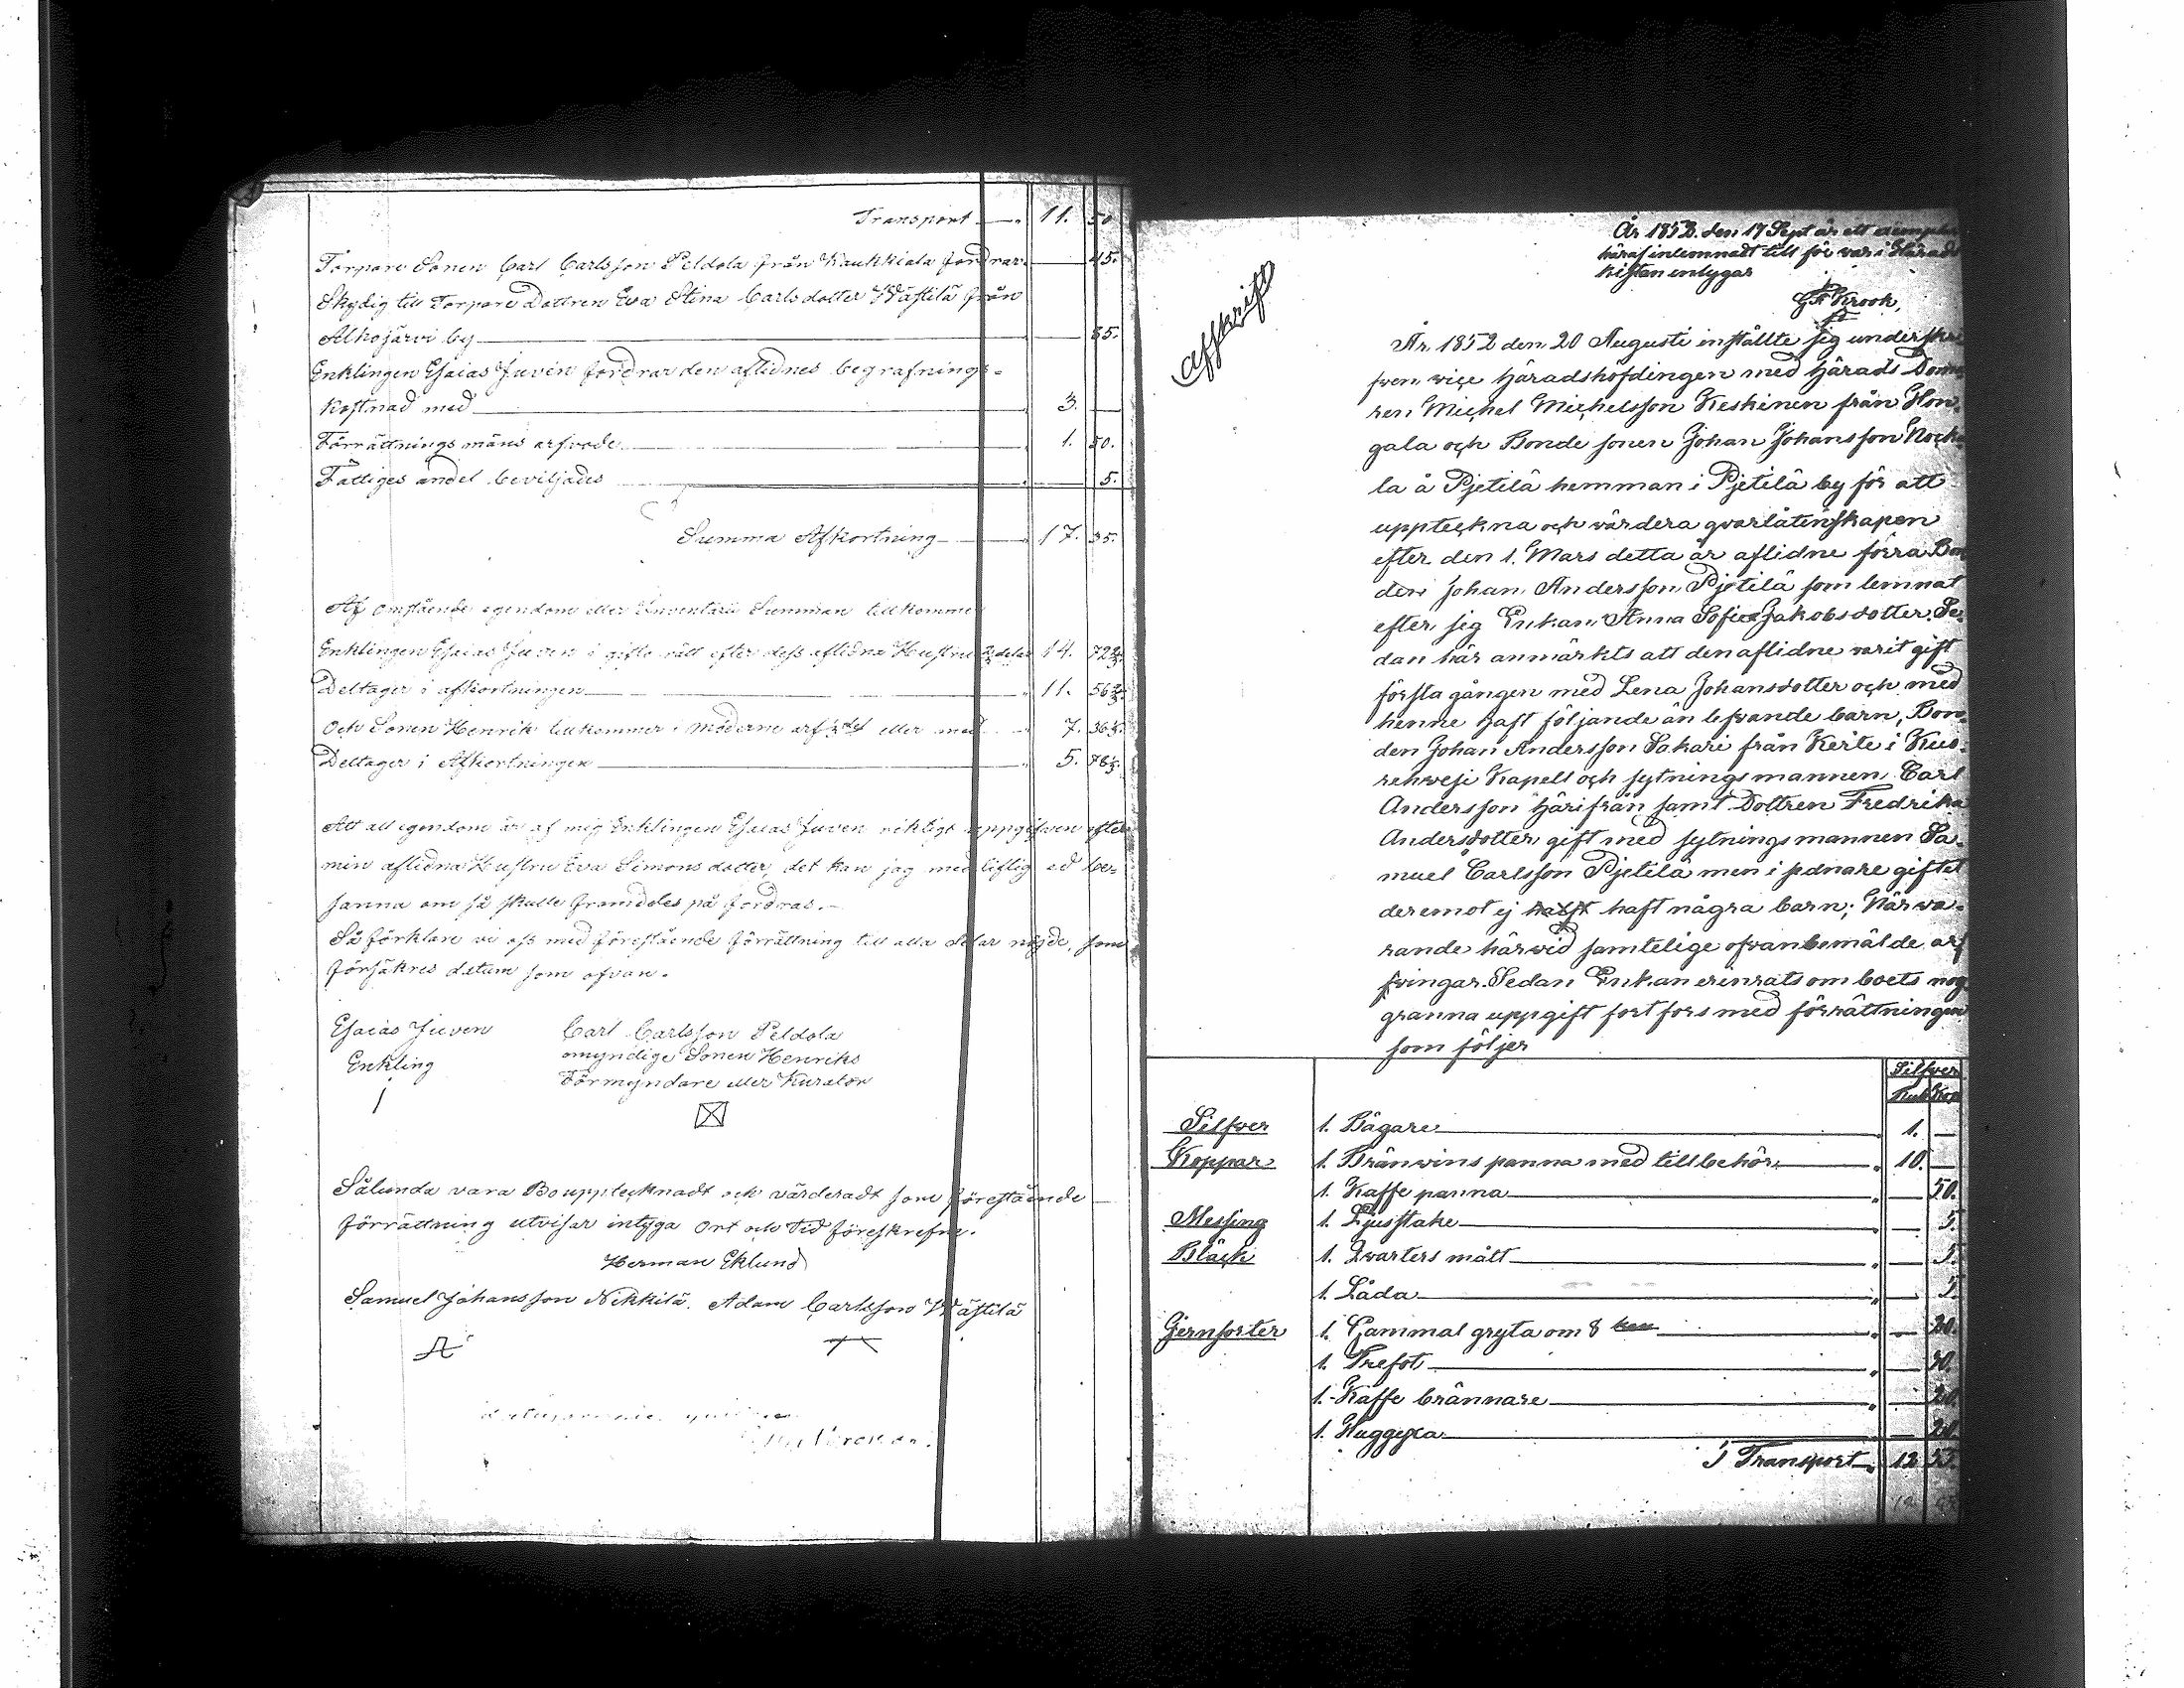 Transport 11. 50
Torpare Sonen Carl Carlsson Peldola från Kaukkiala fordrar 45.
Skydig till Torpare Dottren Eva Stina Carlsdotter Wästilä från
Alhojärvi by 85.
Enklingen Esaias Juven fordrar den aflidnes begrafnings-
kostnad med 3. —
Förrättnings mäns arfvode 1. 50.
Fattiges andel beviljades 5.
Summa Afkortning 17. 35.
Af omstående egendom eller Inventarii Summan tillkommer
Enklingen Esaias Juven i gifto rätt efter dess aflidna Hustru 2/3 delar 14. 72 2/3.
Deltager i afkortningen 11. 56 2/3.
Och Sonen Henrik tillkommer i möderne arf 1/3 del eller med 7. 36 1/3.
Deltager i Afkortningen 5. 78 1/3.
Att all egendom är af mig Enklingen Esaias Juven riktigt uppgifven efter
min aflidna Hustru Eva Simonsdotter, det kan jag med liflig ed be-
sanna om så skulle framdeles på fordras.-
Så förklare vi oss med förestående förrättning till alla delar nöjde, som
försäkres datum som ofvan.
Esaias Juven Carl Carlsson Peldola
Enkling omyndige Sonen Henriks
Förmyndare eller Kurator
Sålunda vara Bo upptecknadt och värderadt som förestående
förrättning utvisar intyga Ort och Tid föreskrefne.
Herman Eklund
Samuel Johansson Nikkilä. Adam Carlsson Wästilä
Afskrift
År 1852. den 17 Sept är ett exemplar
häraf inlemnadt till för var i Härads
kistan intygar
G F Krook,
År 1852 den 20 Augusti inställte sig underskre
fven vice Häradshöfdingen med Härads Doma
ren Michel Michelsson Keskinen från Hon-
gala och Bonde sonen Johan Johansson Nocka
la å Pjetilä hemman i Pjetilä by för att
uppteckna och värdera qvarlåtenskapen
efter den 1. Mars detta år aflidne förra Bon
den Johan Andersson Pjetilä som lemnat
efter sig Enkan Anna Sofia Jakobsdotter. Se-
dan här anmärkts att den aflidne varit gift
första gången med Lena Johansdotter och med
henne haft följande än lefvande barn, Bon-
den Johan Andersson Sakari från Kerte i Kuo-
rehwesi Kapell och sytningsmannen Carl
Andersson härifrån samt Dottren Fredrika
Andersdotter gift med sytningsmannen Sa-
muel Carlsson Pjetilä men i sednare giftet
deremot ej haft haft några barn; Närwa-
rande härwid samtelige ofvanbemälde arf
fvingar. Sedan Enkan erinrats om boets nog
granna uppgift fortfors med förrättningen
som följer
Silfver
Rub Kop
Silfver 1. Bägare 1. —
Koppar 1. Bränwins panna med tillbehör 10. —
1. Kaffe panna — 50.
Messing 1. Ljusstake — 5.
Bläck 1. Qvarters mått — 5.
1. Låda — 5.
Jernsorter 1. Gammal gryta om 8 — 20.
1. Trefot —
1. Kaffe brännare — 20.
1. Huggyxa — 20.
I Transport 12